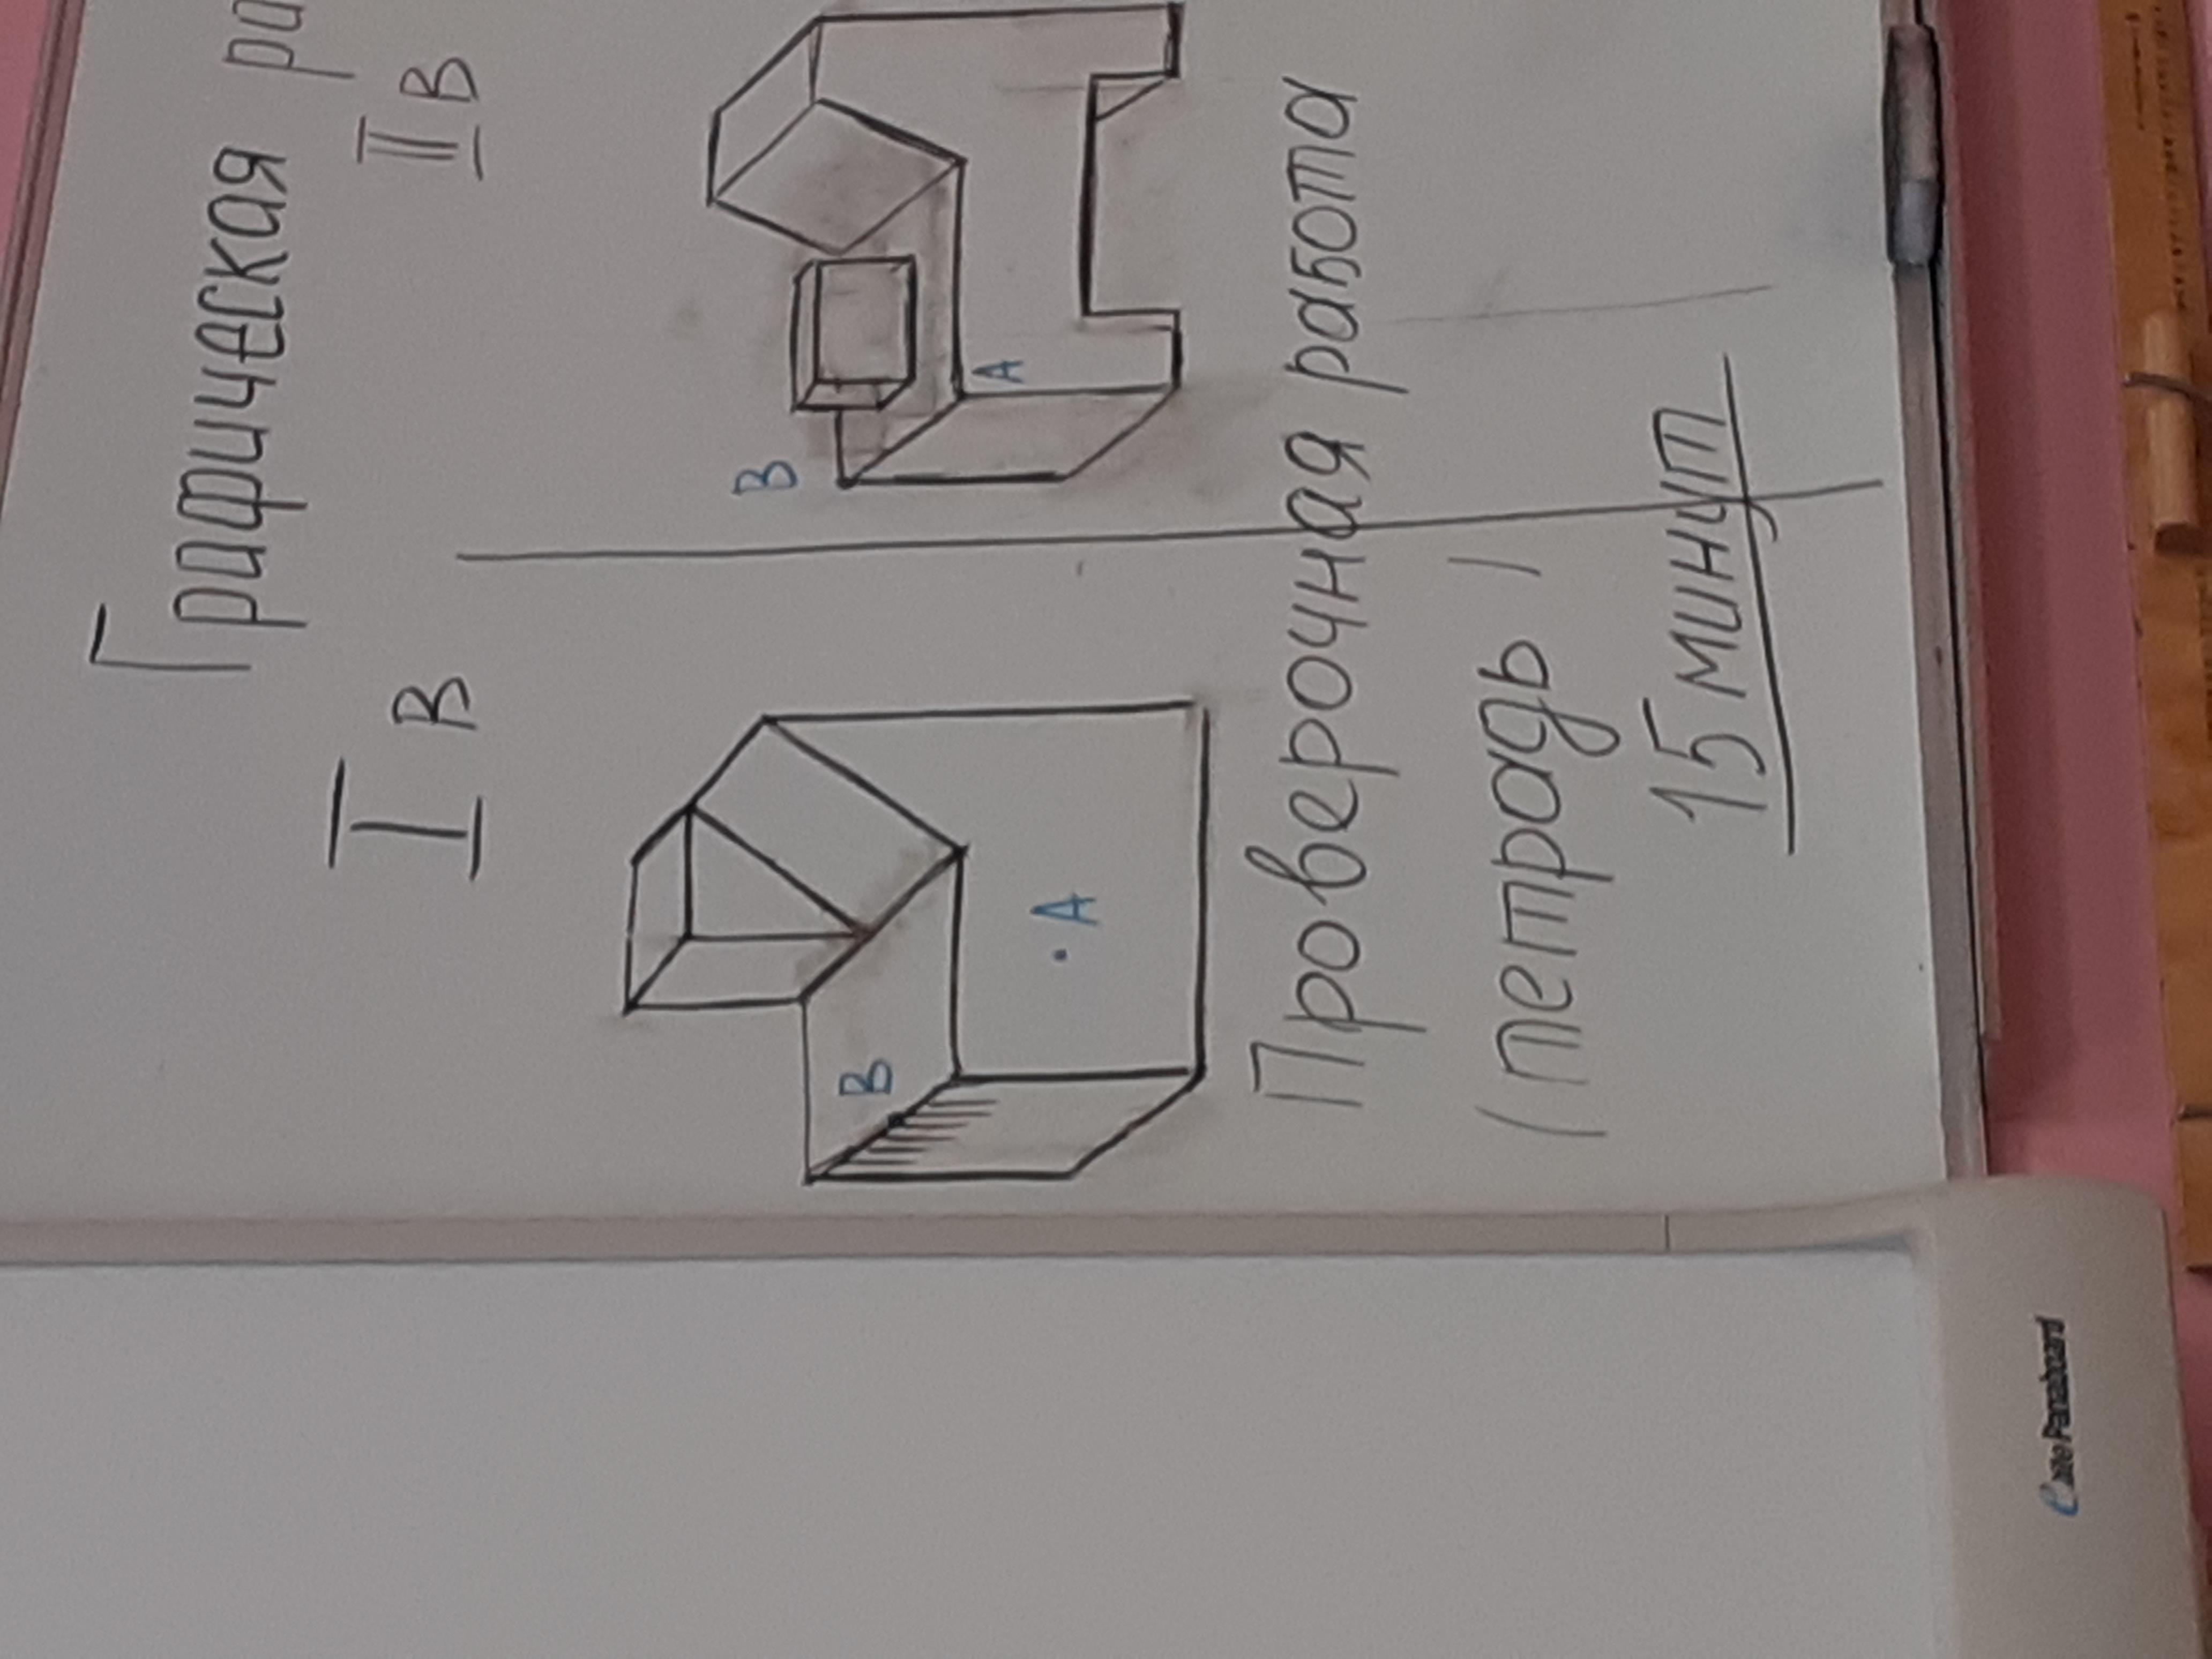 Графическая ра
I в
II в
В
А
В
А
Проверочная работа
(тетрадь)
15 минут
elite Panaboard